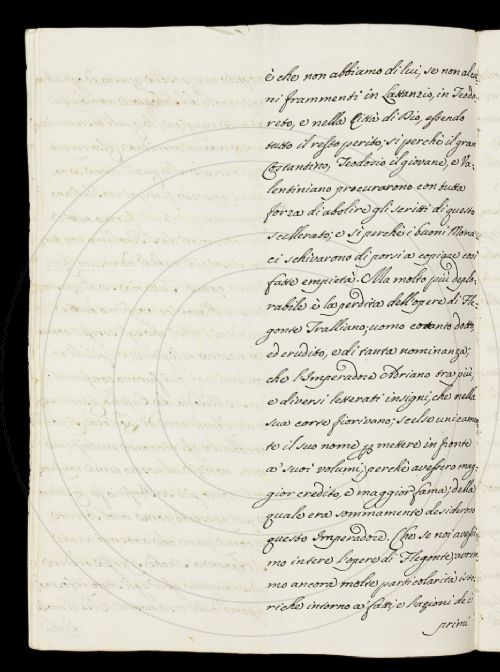 è che non abbiamo di lui, se non alcu-
ni frammenti in Lattanzio, in Teodo-
reto, e nella Città di Dio, essendo
tutto il resto perito; sì perchè il gran
Costantino, Teodosio il giovane, e Va-
lentiniano procurarono con tutta
forza di abolire gli scritti di questo
scellerato; e sì perchè i buoni Mona-
ci schivarono di porsi a copiare così
fatte empietà. Ma molto più deplo-
rabile è la perdita dell'opere di Fle-
gonte Tralliano; uomo cotanto dotto,
ed erudito, e di tanta nominanza;
che l'Imperadore Adriano tra più,
e diversi letterati insigni, che nella
sua corte fiorivano; scelse unicamen-
te il suo nome p mettere in fronte
a' suoi volumi, perchè avessero mag-
gior credito, e maggior fama; della
quale era sommamente desideroso
questo Imperadore. Che se noi avessi-
mo intere l'opere di Flegonte, avrem-
mo ancora molte particolarità isto-
riche intorno a' fatti, e l'azioni de i
primi